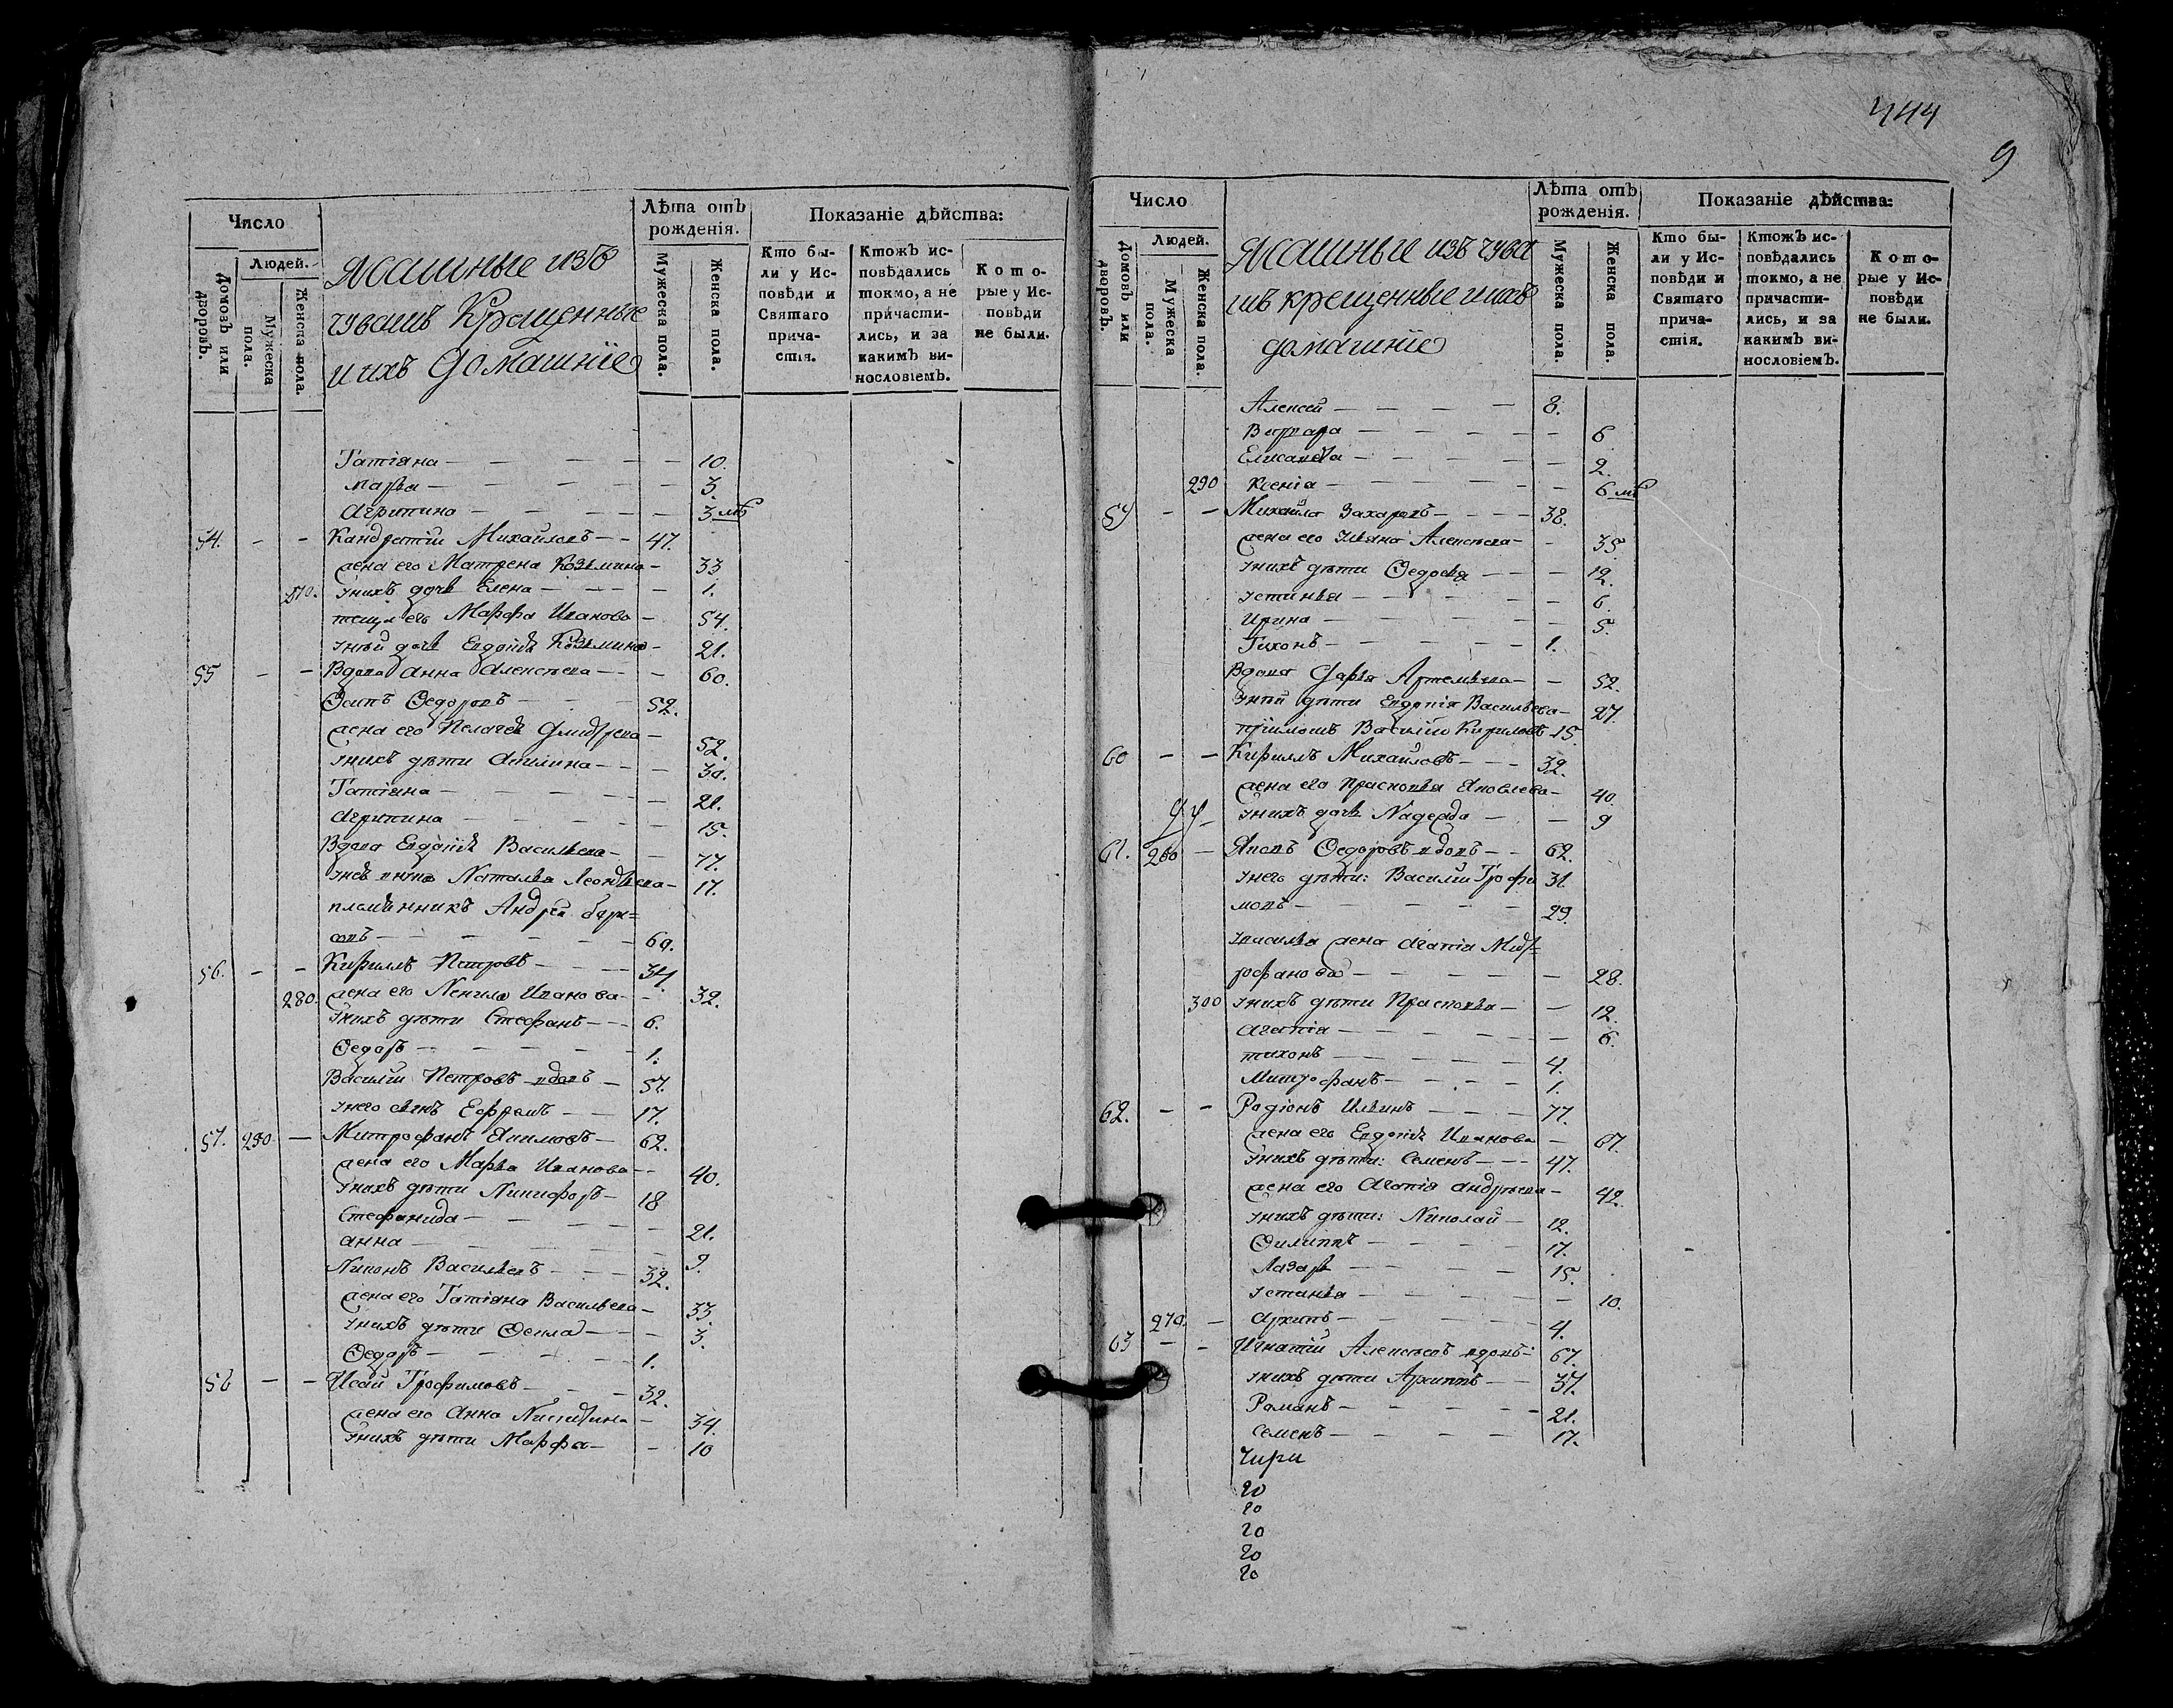 444
9
Число
Людей.
Домовъ или дворовъ.
Мужеска пола.
Женска пола.
Ясашные изъ
чувашъ Крещенные
и ихъ Домашніе
Лѣта отъ рожденія.
Мужеска пола.
Женска пола.
Показаніе дѣйства:
Кто бы-
ли у Ис-
повѣди и
Святаго
прича-
стія.
Ктожъ ис-
повѣдались
токмо, а не
причасти-
лись, и за
какимъ ви-
нословіемъ.
Кото-
рые у Ис-
повѣди
не были.
Татіяна — 10.
Марѳа — 3.
Агрипина — 3 мѣ
54. — — Кандратій Михайловъ — 47.
жена его Матрена Козьмина — 33
270. у нихъ дочь Елена — 1.
теща его Марфа Иванова — 54.
у ней дочь Евдокія Козьмина — 21.
55 — — Вдова Анна Алексѣева — 60.
Осипъ Ѳедоровъ — 52.
жена его Пелагея Дмитрева — 52.
у нихъ дѣти Акилина — 30.
Татіяна — 21.
Агрипина — 15.
Вдова Евдокія Васильева — 77.
Наталья Леонтьева — 17.
племянникъ Андрей Бори=
совъ — 60.
56. — — Кирилъ Петровъ — 34.
280. жена его Ненила Иванова — 32.
у нихъ дѣти Стефанъ — 6.
Ѳедоръ — 1.
Василій Петровъ вдовъ — 57.
у него сынъ Ефремъ — 17.
57. 250 — Митрофанъ Акимовъ — 62.
жена его Марья Иванова — 40.
у нихъ дѣти Никифоръ — 18
Стефанида — 21.
Анна — 9.
Никонъ Васильевъ — 32.
жена его Татіяна Васильева — 33.
у нихъ дѣти Ѳекла — 3.
Ѳедоръ — 1.
58 — — Исай Трофимовъ — 32.
жена его Анна Никитина — 34.
у нихъ дѣти Марфа — 10
Число
Людей.
Домовъ или дворовъ.
Мужеска пола.
Женска пола.
Ясашные изъ чува
шъ крещенные и ихъ
домашніе
Лѣта отъ рожденія.
Мужеска пола.
Женска пола.
Показаніе дѣйства:
Кто бы-
ли у Ис-
повѣди и
Святаго
прича-
стія.
Ктожъ ис-
повѣдались
токмо, а не
причасти-
лись, и за
какимъ ви-
нословіемъ.
Кото-
рые у Ис-
повѣди
не были.
Алексей — 8.
Варвара — 6
Елисавета — 2.
290 Ксенія — 6 мѣ
59 — — Михайло Захаровъ — 38.
жена его Ульяна Алексѣева — 35
у нихъ дѣти Ѳедосья — 12.
Устинья — 6.
Ирина — 5.
Тихонъ — 1.
Вдова Дарья Артемьева — 52.
у ней дѣти Евдокія Васильева — 27.
пріимышъ Василій Кириловъ — 15.
60 — — Кирилъ Михайловъ — 32.
жена его Прасковья Яковлева — 40.
у нихъ дочь Надежда — 9
61. 260 — Яковъ Ѳедоровъ вдовъ — 62.
у него дѣти: Василій Трофи 31.
мовъ — 29.
у Василья жена Агапія Мит=
рофанова — 28.
300 у нихъ дѣти Прасковья — 12.
Агапія — 6.
тихонъ — 4.
Митрофанъ — 1.
62. — — Родіонъ Ильинъ — 77.
жена его Евдокія Иванова — 67.
у нихъ дѣти: Семенъ — 47.
жена его Агапія Андреева — 42.
у нихъ дѣти: Николай — 12.
Филиппъ — 17.
Лазарь — 15.
Устинья — 10.
270. — Архипъ — 4.
63 — — Игнатій Алексѣевъ вдовъ — 67.
у нихъ дѣти Архиппъ — 37.
Романъ — 21.
Семенъ — 17.
Чири
20
20
20
20
20